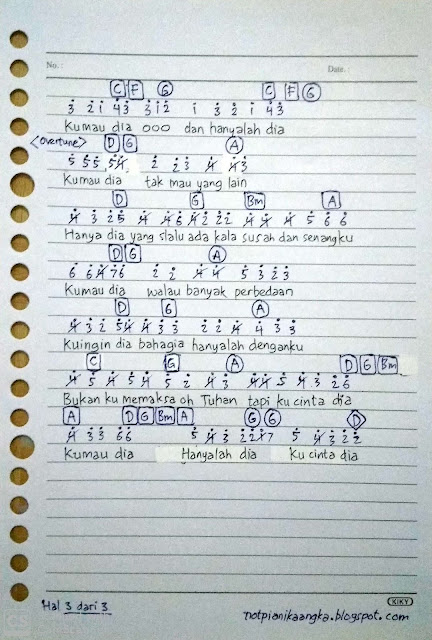 No. : Date. :
C F G C F G
3 2 1 4 3 3 1 2 1 3 2 1 4 3
Kumau dia ooo dan hanyalah dia
<overtune> D G A
5 5 5 5 4 2 2 3 4 4 3
Kumau dia tak mau yang lain
D G Bm A
4 3 2 5 4 4 6 4 2 2 2 4 4 4 5 6 6
Hanya dia yang slalu ada kala susah dan senangku
D G A
6 6 4 7 6 2 2 4 4 5 3 2 3
Kumau dia walau banyak perbedaan
D G A
4 3 2 5 4 4 3 3 2 2 4 4 3 3
Kuingin dia bahagia hanyalah denganku
C G A D G Bm
4 5 4 5 4 5 2 4 3 4 4 5 4 3 2 6
Bukan ku memaksa oh Tuhan tapi ku cinta dia
A D G Bm A G G D
4 3 3 6 6 5 4 3 2 2 1 7 5 4 3 2 2
Kumau dia Hanyalah dia Ku cinta dia
KIKY
Hal 3 dari 3
notpianikaangka.blogspot.com
CS